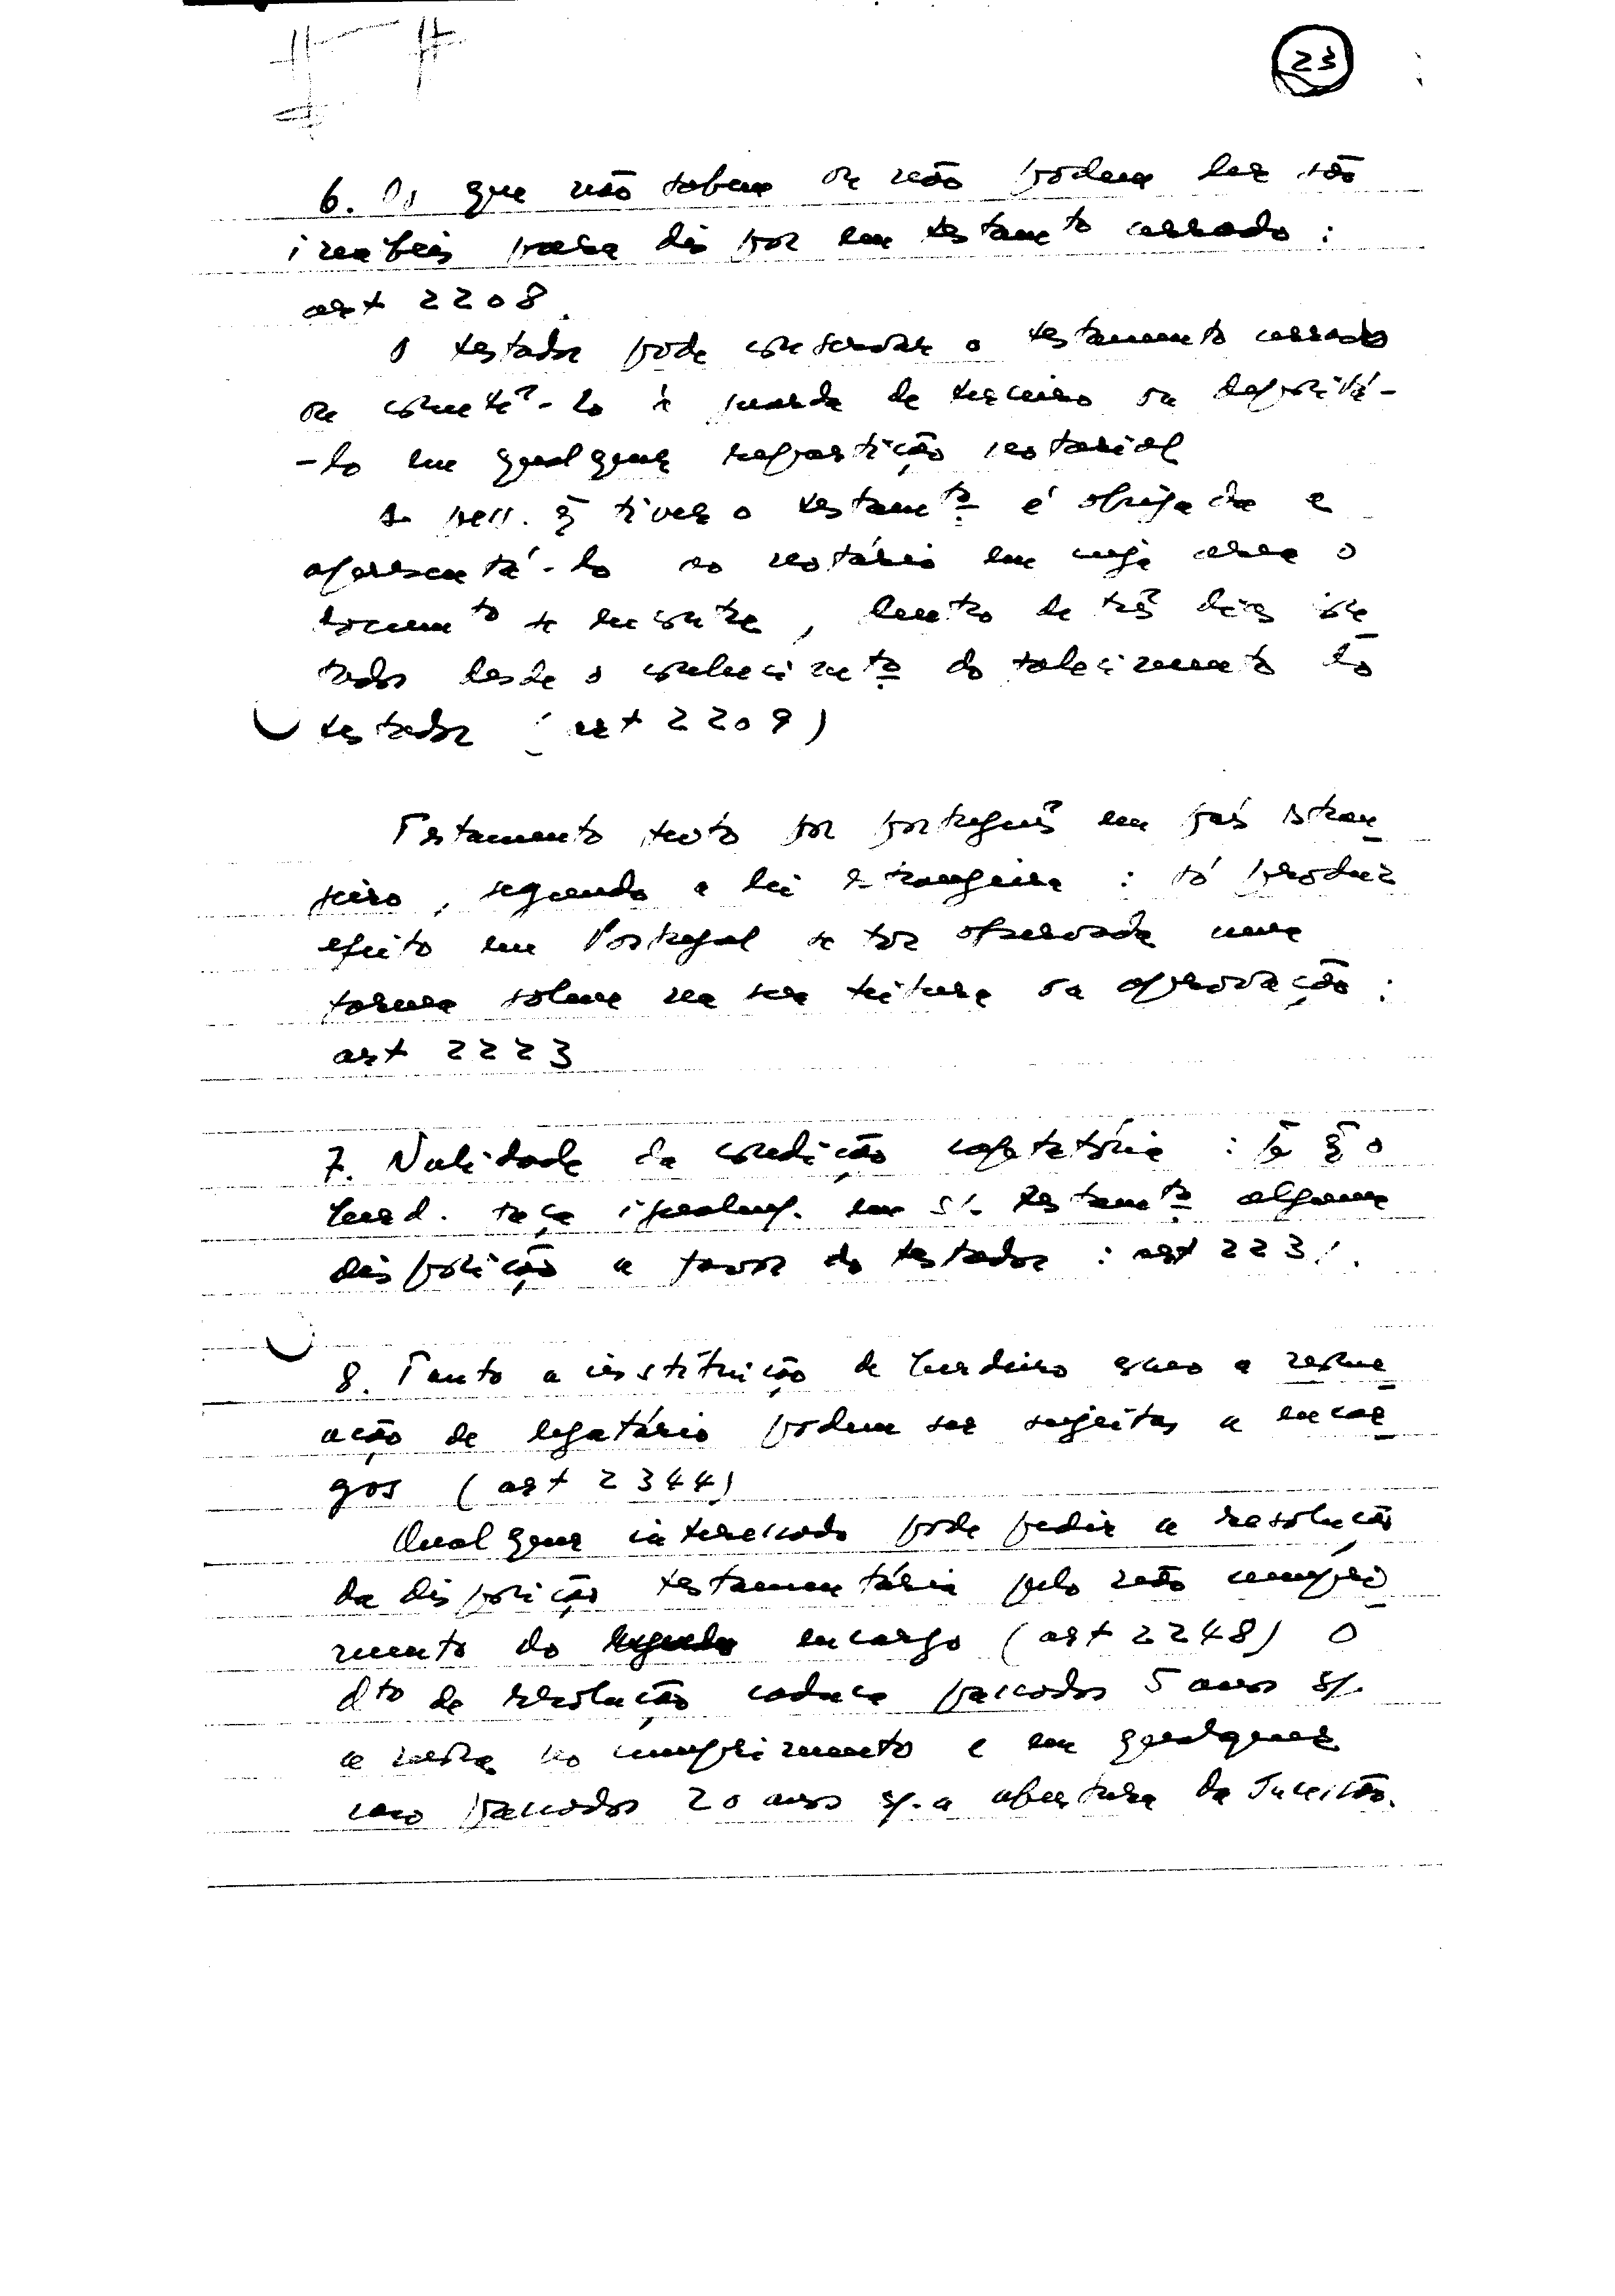 23
6. Os que não sabem ou não podem ler são
inábeis para dispor em testamto cerrado :
art 2208.
O testador pode conservar o testamento cerrado
ou cometê-lo à guarda de terceiro ou depositá-
-lo em qualquer repartição notarial
A pess. q̃ tiver o testamto é obrigada a
apresentá-lo ao notário em cuja área o
documto se encontra, dentro de três dias con
tados desde o conhecimto do falecimento do
testador (art 2209)
Testamento feito por português em país estran
geiro, segundo a lei estrangeira : só produz
efeito em Portugal se for observada uma
forma solene na sua feitura ou aprovação :
art 2223
7. Nulidade da condição captatória : q̃ o
herd. faça igualm. em s/. testamto alguma
disposição a favor do testador : art 2231.
8. Tanto a instituição de herdeiro como a nome
ação de legatário podem ser sujeitas a encar
gos (art 2344)
Qualquer interessado pode pedir a resolução
da disposição testamentária pelo não cumpri
mento do encargo (art 2248) O
dto de resolução caduca passados 5 anos s/.
a mora no cumprimento e em qualquer
caso passados 20 anos s/. a abertura da sucessão.